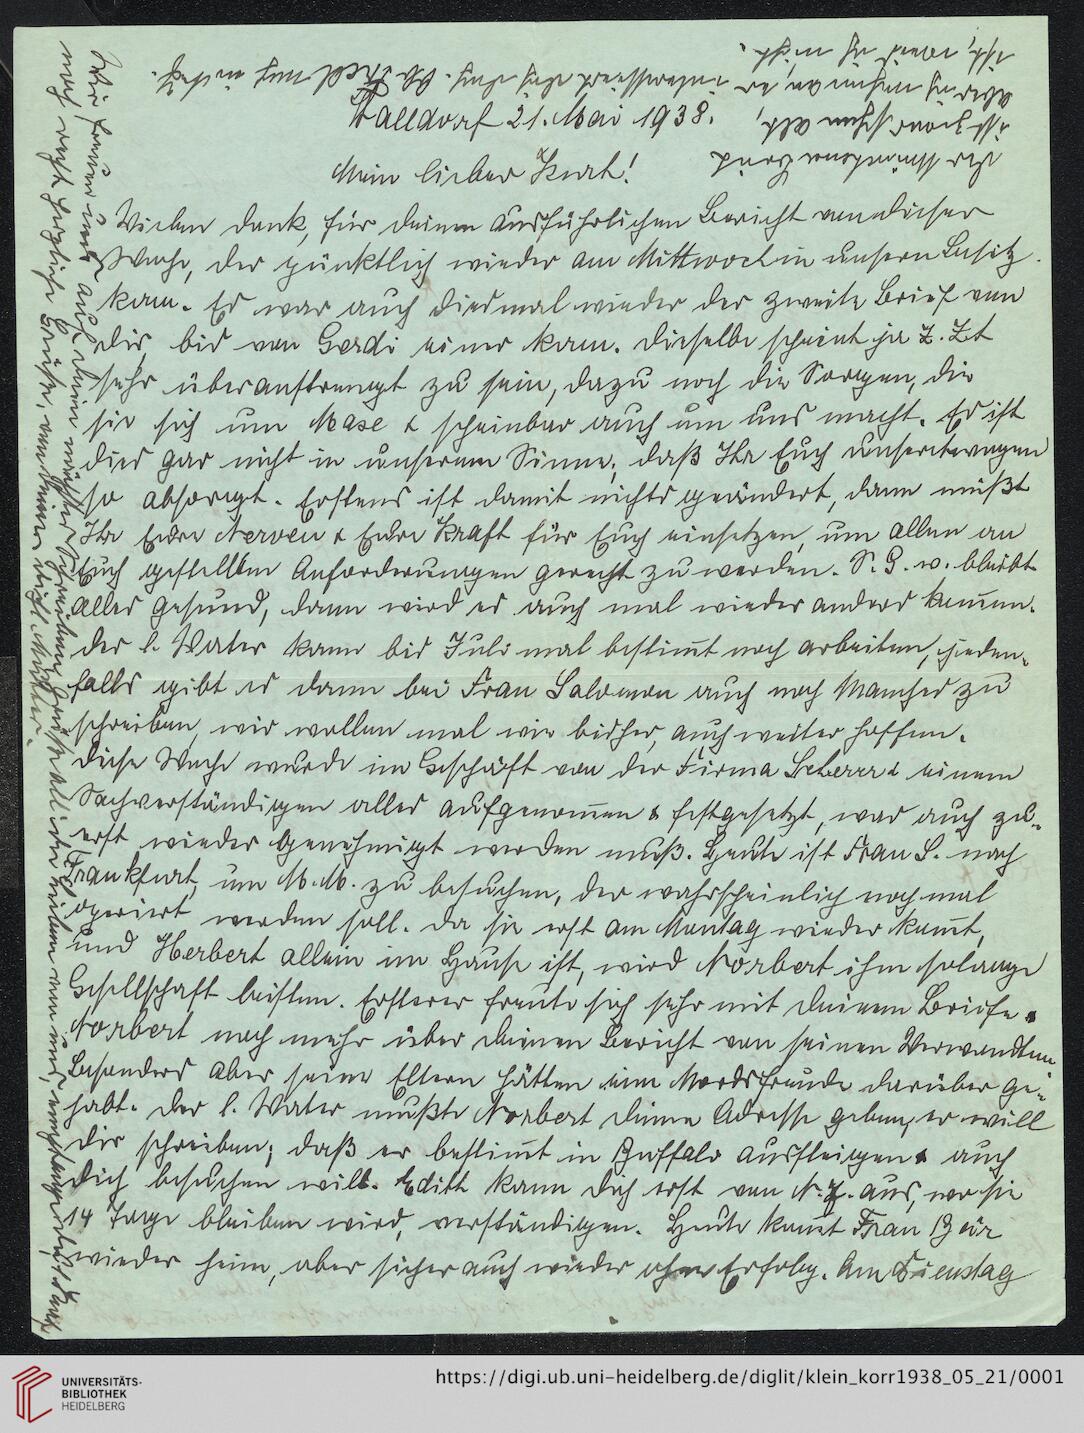 Walldorf 21. Mai 1938.
Mein lieber Kurt!
Vielen Dank, für deinen ausführlichen Bericht von dieser
Woche, der pünktlich wieder am Mittwoch in unsern Besitz
kam. Es war auch diesmal wieder der zweite Brief von
dir, bis von Gerdi einer kam. Dieselbe scheint ja z. Zt
sehr überanstrengt zu sein, dazu noch die Sorgen, die
sie sich um Mase & scheinbar auch um uns macht. Es ist
dies gar nicht in unserem Sinne, daß Ihr Euch unseretwegen
so absorgt. Erstens ist damit nichts geändert, dann müßt
Ihr Eure Nerven & Eure Kraft für Euch einsetzen, um allen an
Euch gestellten Anforderungen gerecht zu werden. S. G. w. bleibt
alles gesund, dann wird es auch mal wieder anders kommen.
Der l. Vater kann bis Juli mal bestimmt noch arbeiten, jeden-
falls gibt es dann bei Frau Salomon auch noch Manches zu
schreiben, wir wollen mal wie bisher, auch weiter hoffen.
Diese Woche wurde im Geschäft von der Firma & einem
Sachverständigen alles aufgenommen & festgesetzt, was auch zu-
erst wieder genehmigt werden muß. Heute ist Frau S. nach
Frankfurt, um M. M. zu besuchen, der wahrscheinlich nochmal
operiert werden soll. Da sie erst am Montag wieder kommt,
und Herbert allein im Hause ist, wird Norbert ihm solange
Gesellschaft leisten. Ersterer freute sich sehr mit deinem Briefe.
Norbert noch mehr über deinen Bericht von seinen Verwandten.
Besonders aber seine Eltern hätten eine Mordsfreude darüber ge-
habt. Der l. Vater mußte Norbert deine Adresse geben, er will
dir schreiben, daß er bestimmt in Buffalo aussteigen & auch
dich besuchen will. Edith kann dich erst von N. Y. aus, wo sie
14 Tage bleiben wird, verständigen. Heute kommt Frau Bär
wieder heim, aber sicher auch wieder ohne Erfolg. Am Dienstag
UNIVERSITÄTS-
BIBLIOTHEK
HEIDELBERG
https://digi.ub.uni-heidelberg.de/diglit/klein_korr1938_05_21/0001